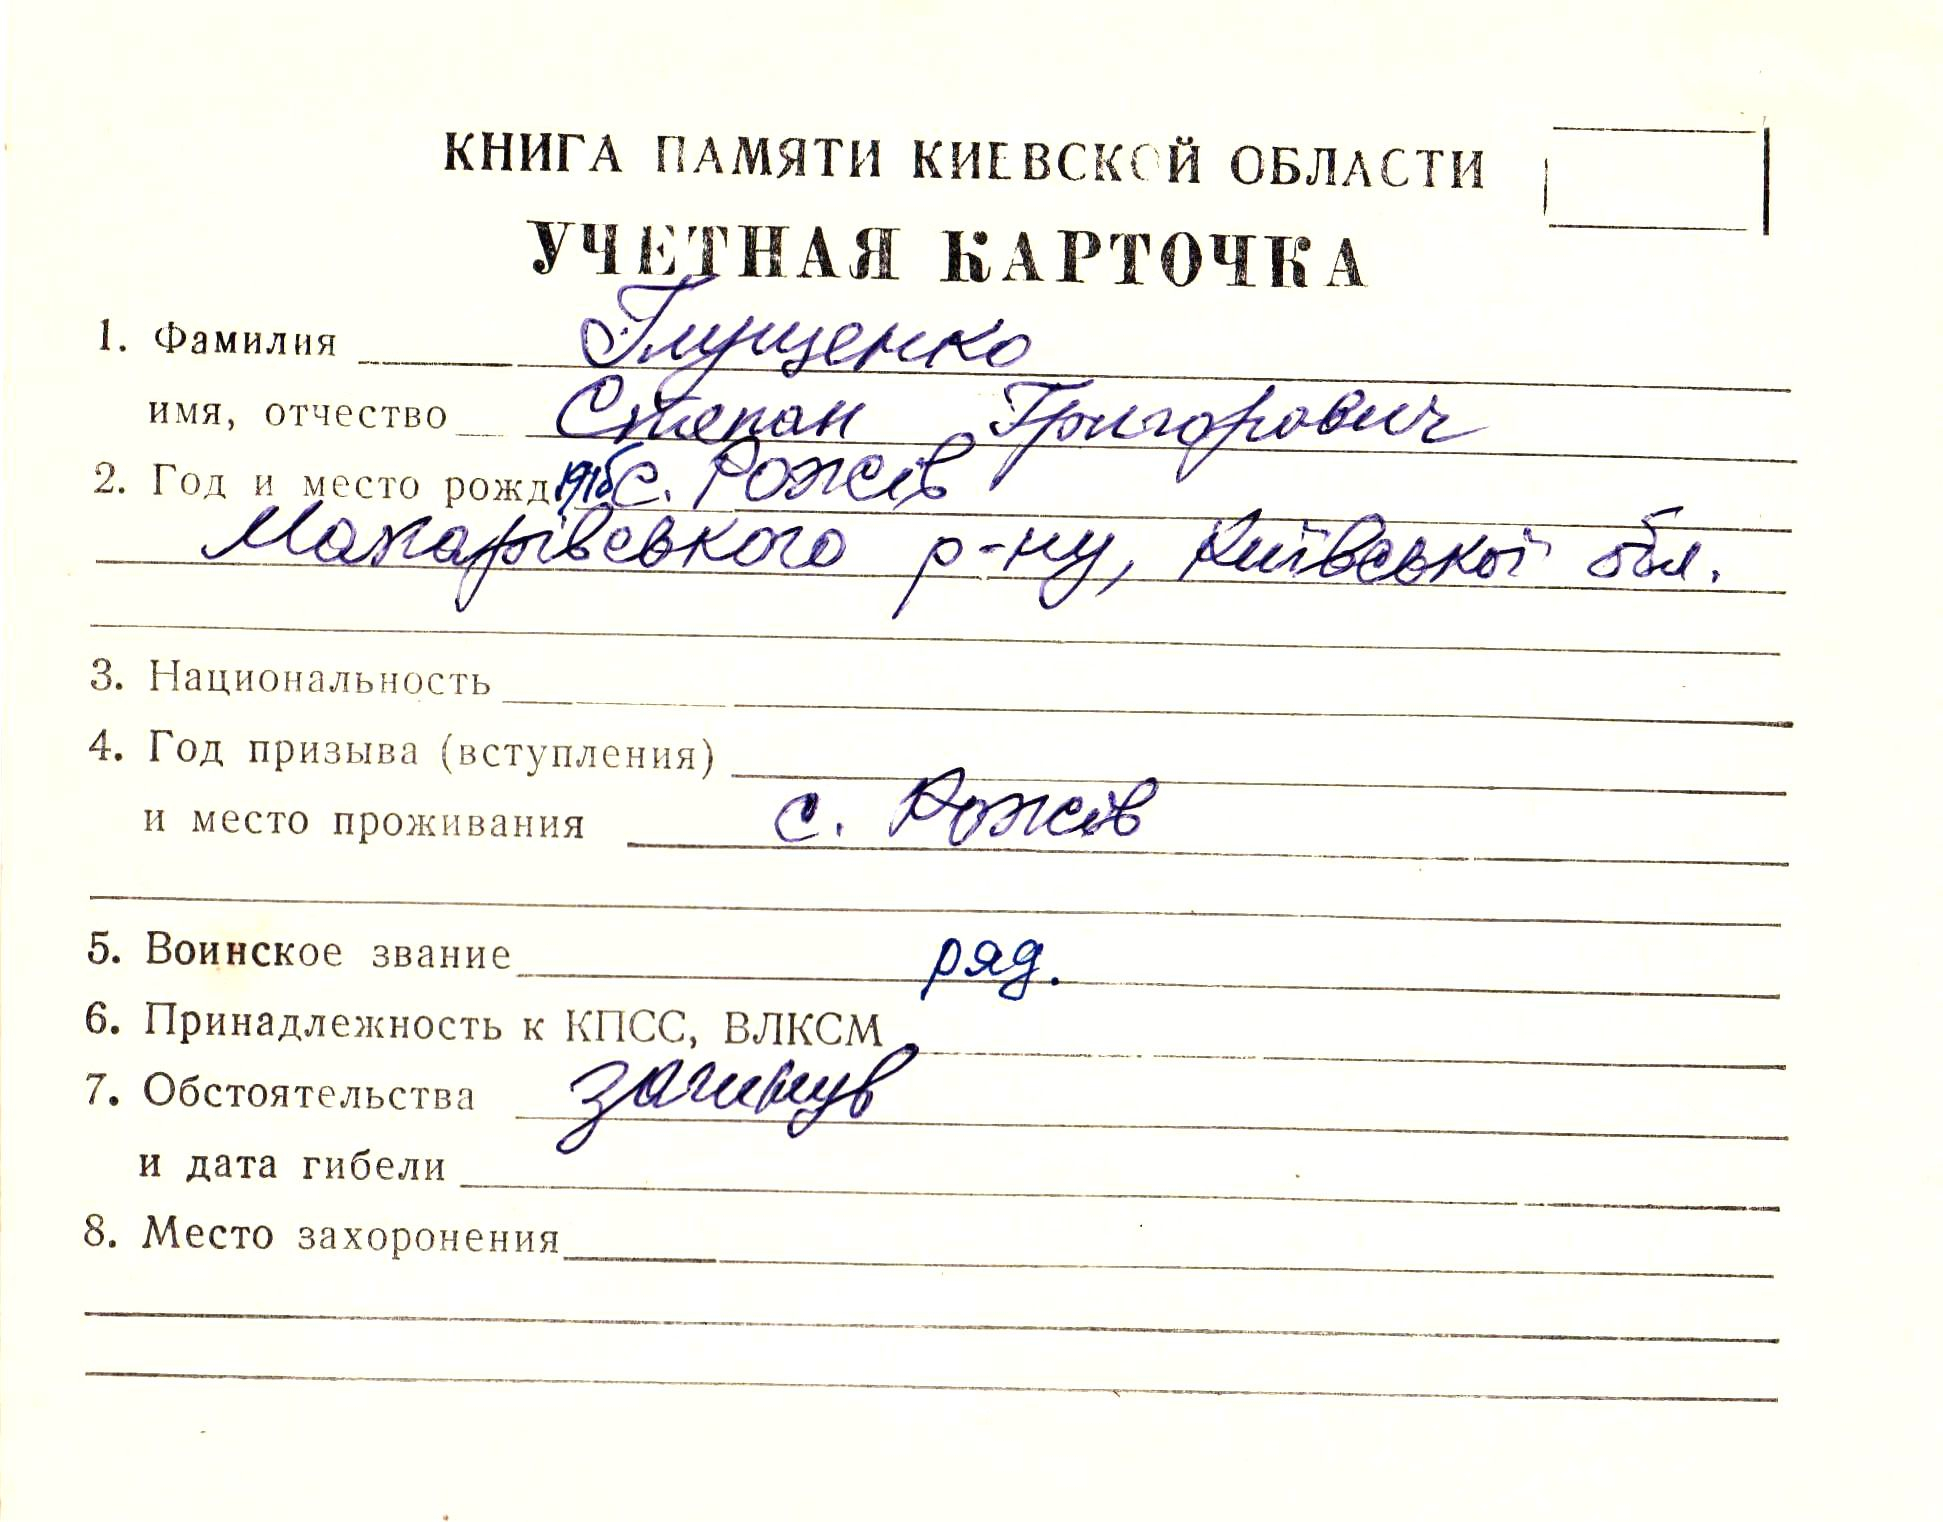 КНИГА ПАМЯТИ КИЕВСКОЙ ОБЛАСТИ
УЧЕТНАЯ КАРТОЧКА
1. Фамилия Глущенко
имя, отчество Степан Григорович
2. Год и место рожд 1916 с. Рожів
Макарівського р-ну, Київської обл.
3. Национальность
4. Год призыва (вступления)
и место проживания с. Рожів
5. Воинское звание ряд.
6. Принадлежность к КПСС, ВЛКСМ
7. Обстоятельства загинув
и дата гибели
8. Место захоронения